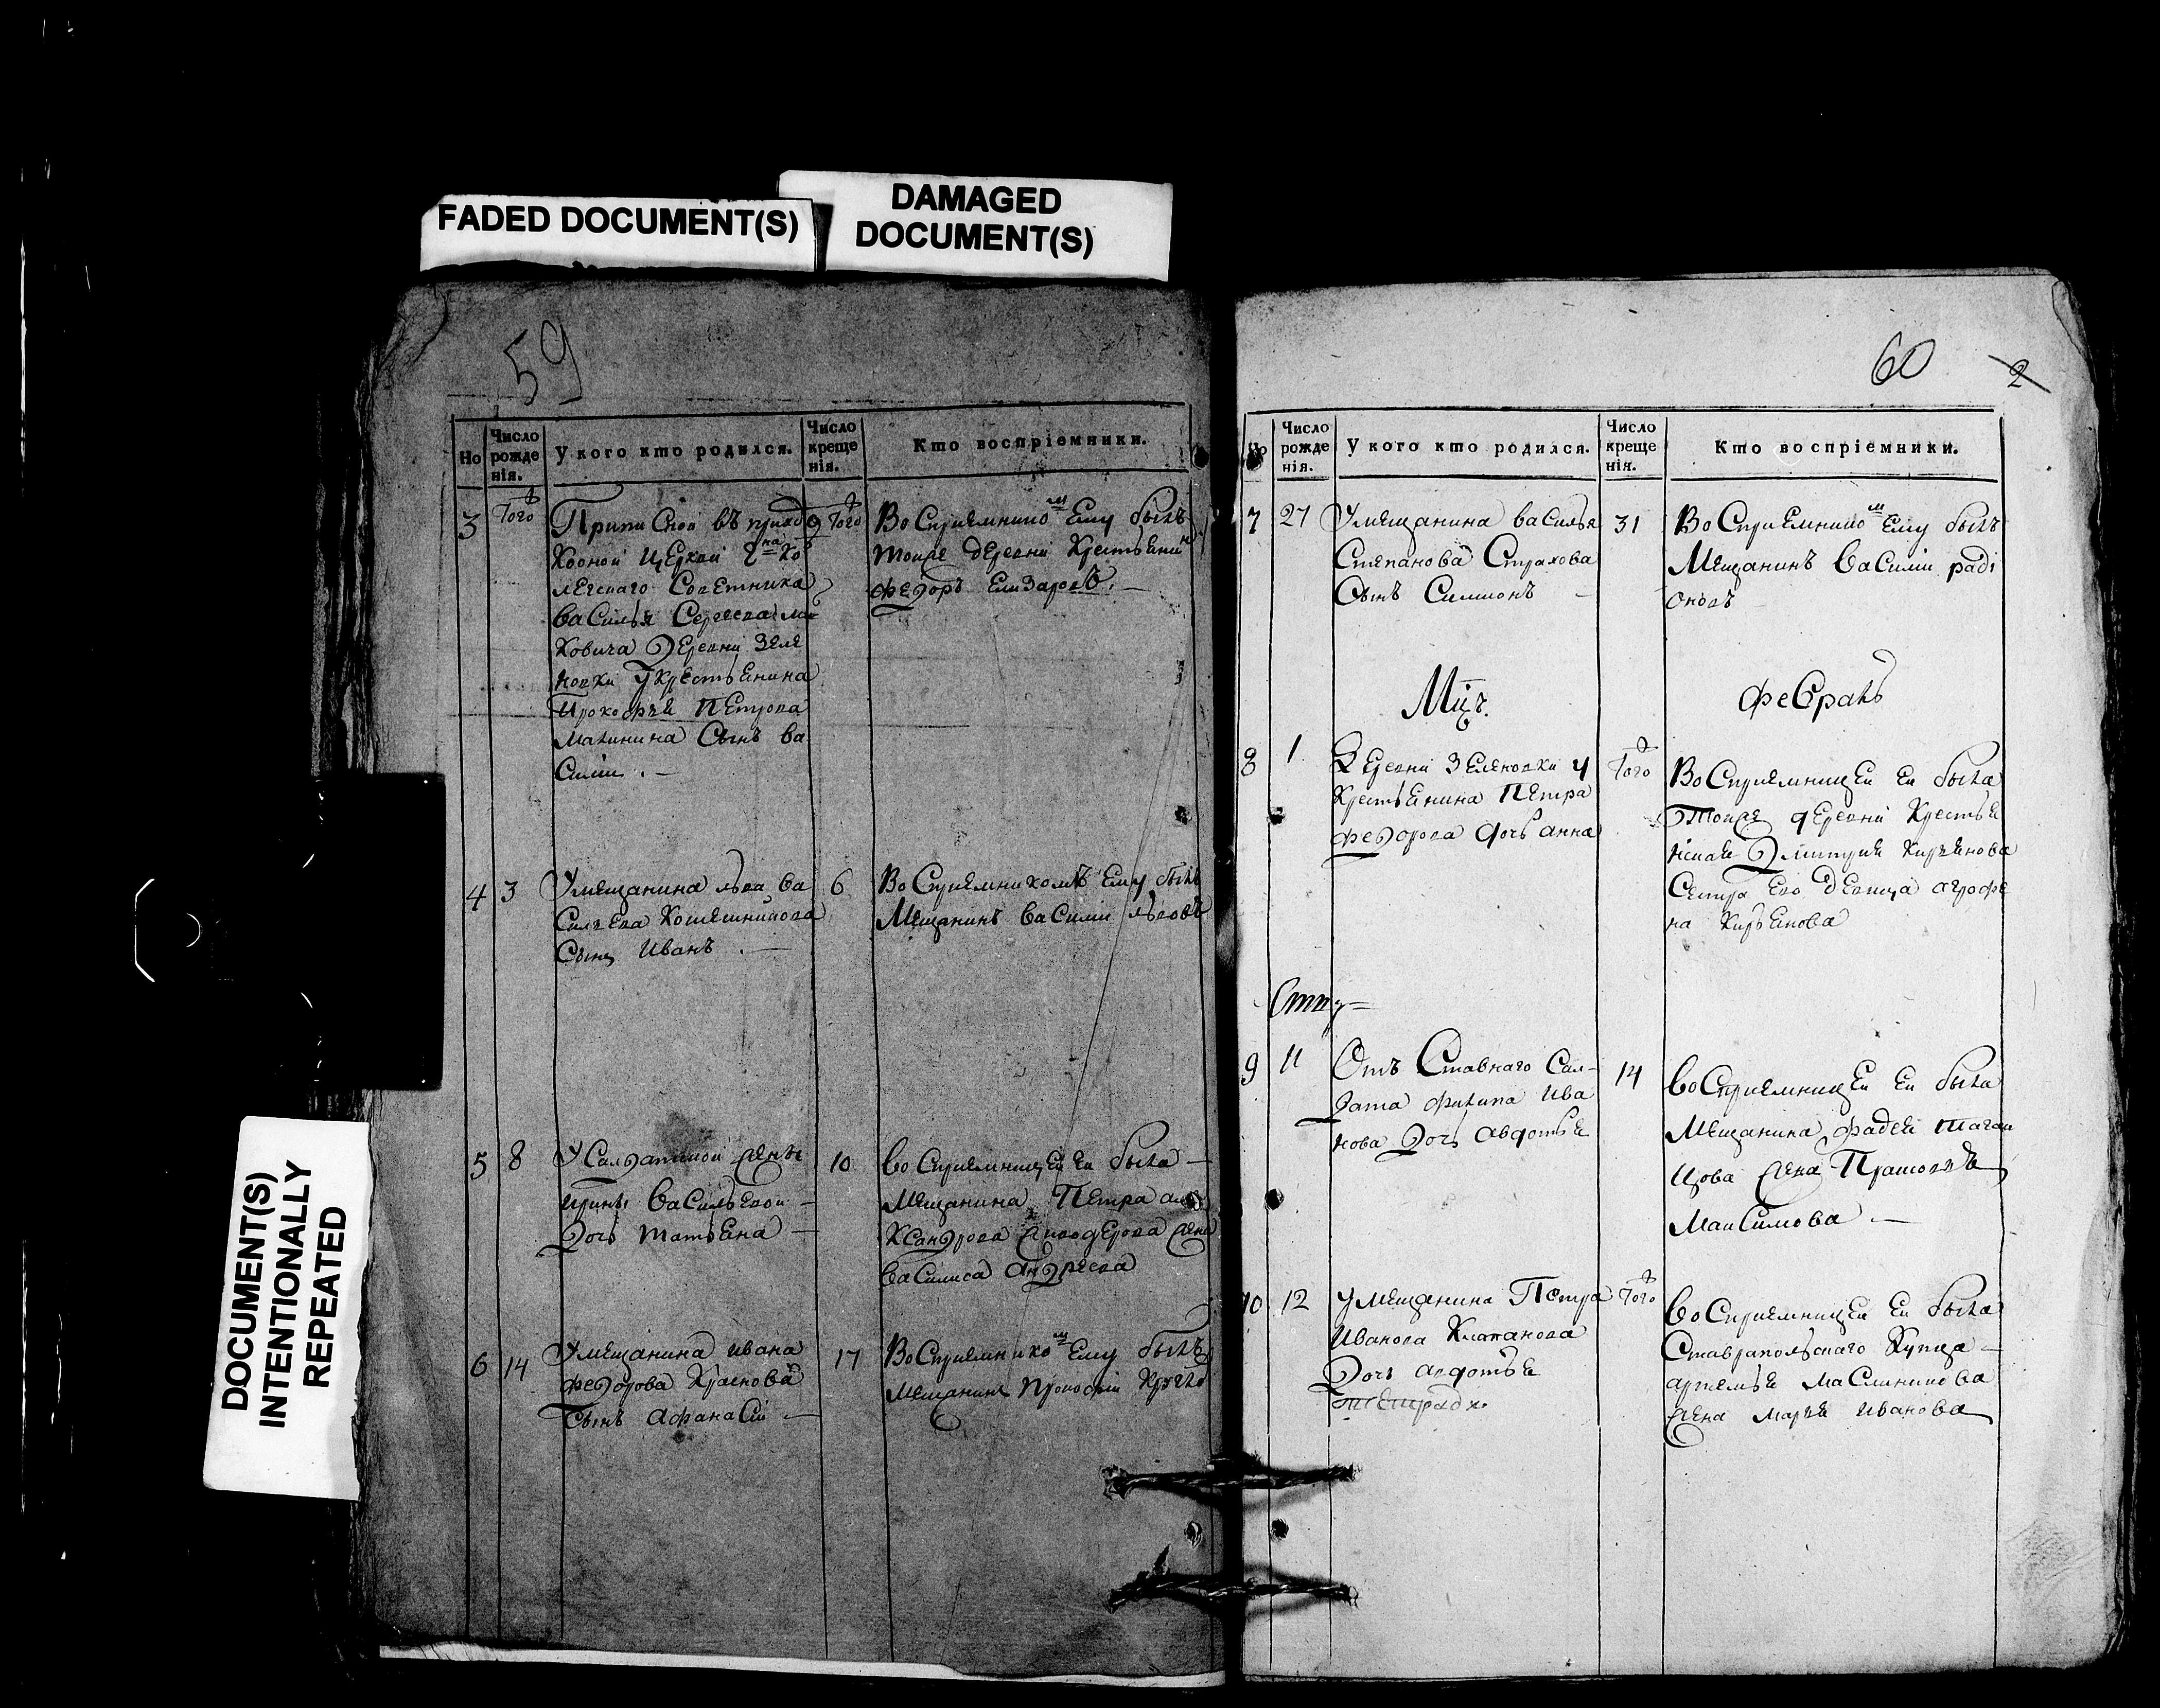 FADED DOCUMENT(S)
DAMAGED
DOCUMENT(S)
DOCUMENT(S)
INTENTIONALLY
REPEATED
59
Но
Число
рожде
нія.
У кого кто родился.
Число
креще
нія.
Кто воспріемники.
3
Того
Припи Сной въ приход
Ходной Церкви Гна Ко
лежскаго Советника
Василья Сергеева
Ковича Деревни Зеле
новки у крестьянина
Прокофья Петрова
Малинина Сынъ Ва
Силіи
Того
Восприемнико м Ему былъ
тоиже деревни Крестьенин
Федоръ Елизаровъ
4
3
У мещанина льва Ва
Сильева
Сынъ Иванъ
6
Восприемникомъ Ему былъ
Мещанинъ Василии львовъ
5
8
У Салдатской жены
ирины Васильевой
Дочь татьена
10
Восприемницей Ей была
Мещанина Петра але
Ксандрова жена
Василиса Андреева
6
14
У мещанина ивана
Федорова Краснова
Сынъ Афанасіи
17
Восприемнико м Ему былъ
Мещанинъ Прокофіи
60
2
Число
рожде
нія.
У кого кто родился.
Число
креще
нія.
Кто воспріемники.
7
27
У мещанина василья
Степанова Страхова
Сынъ Симионъ
31
Восприемнико м Ему былъ
Мещанинъ василіи раді
оновъ
Мцъ.
февраль
8
1
Деревни Зеленовки у
Крестьенина Петра
Федорова дочь анна
Того
Восприемницей Ей была
Тоиже деревни Крестье
нина Дмитрия Кирьенова
Сестра Его девица агрофе
на Кирьенова
9
11
Отъ Ставнаго Сал-
дата филипа ива
нова Дочь авдотье
14
восприемницей Ей была
Мещанина фадеи таган
цова жена
Максимова
10
12
У мещанина Петра
Иванова Клапанова
Дочь авдотье
Того
восприемницей Ей была
Ставрапольскаго Купца
артемье Маслиникова
жена марье иванова